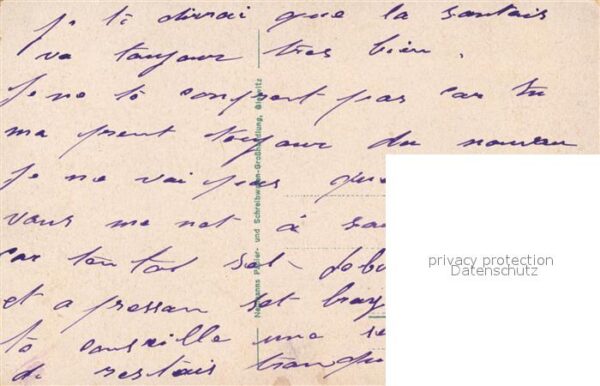 je ti dirrai que la santais
va toujour tres bien.
Je ne tò conprent pas car tu
ma prent toujour du nouveau
Je ne vai pas que
vous me net à sa
car ton tat set
et a pressan set
tò conseille une se
de restais tranqu
Neumanns Papier- und Schreibwaren-Großhandlung, Gleiwitz
privacy protection
Datenschutz